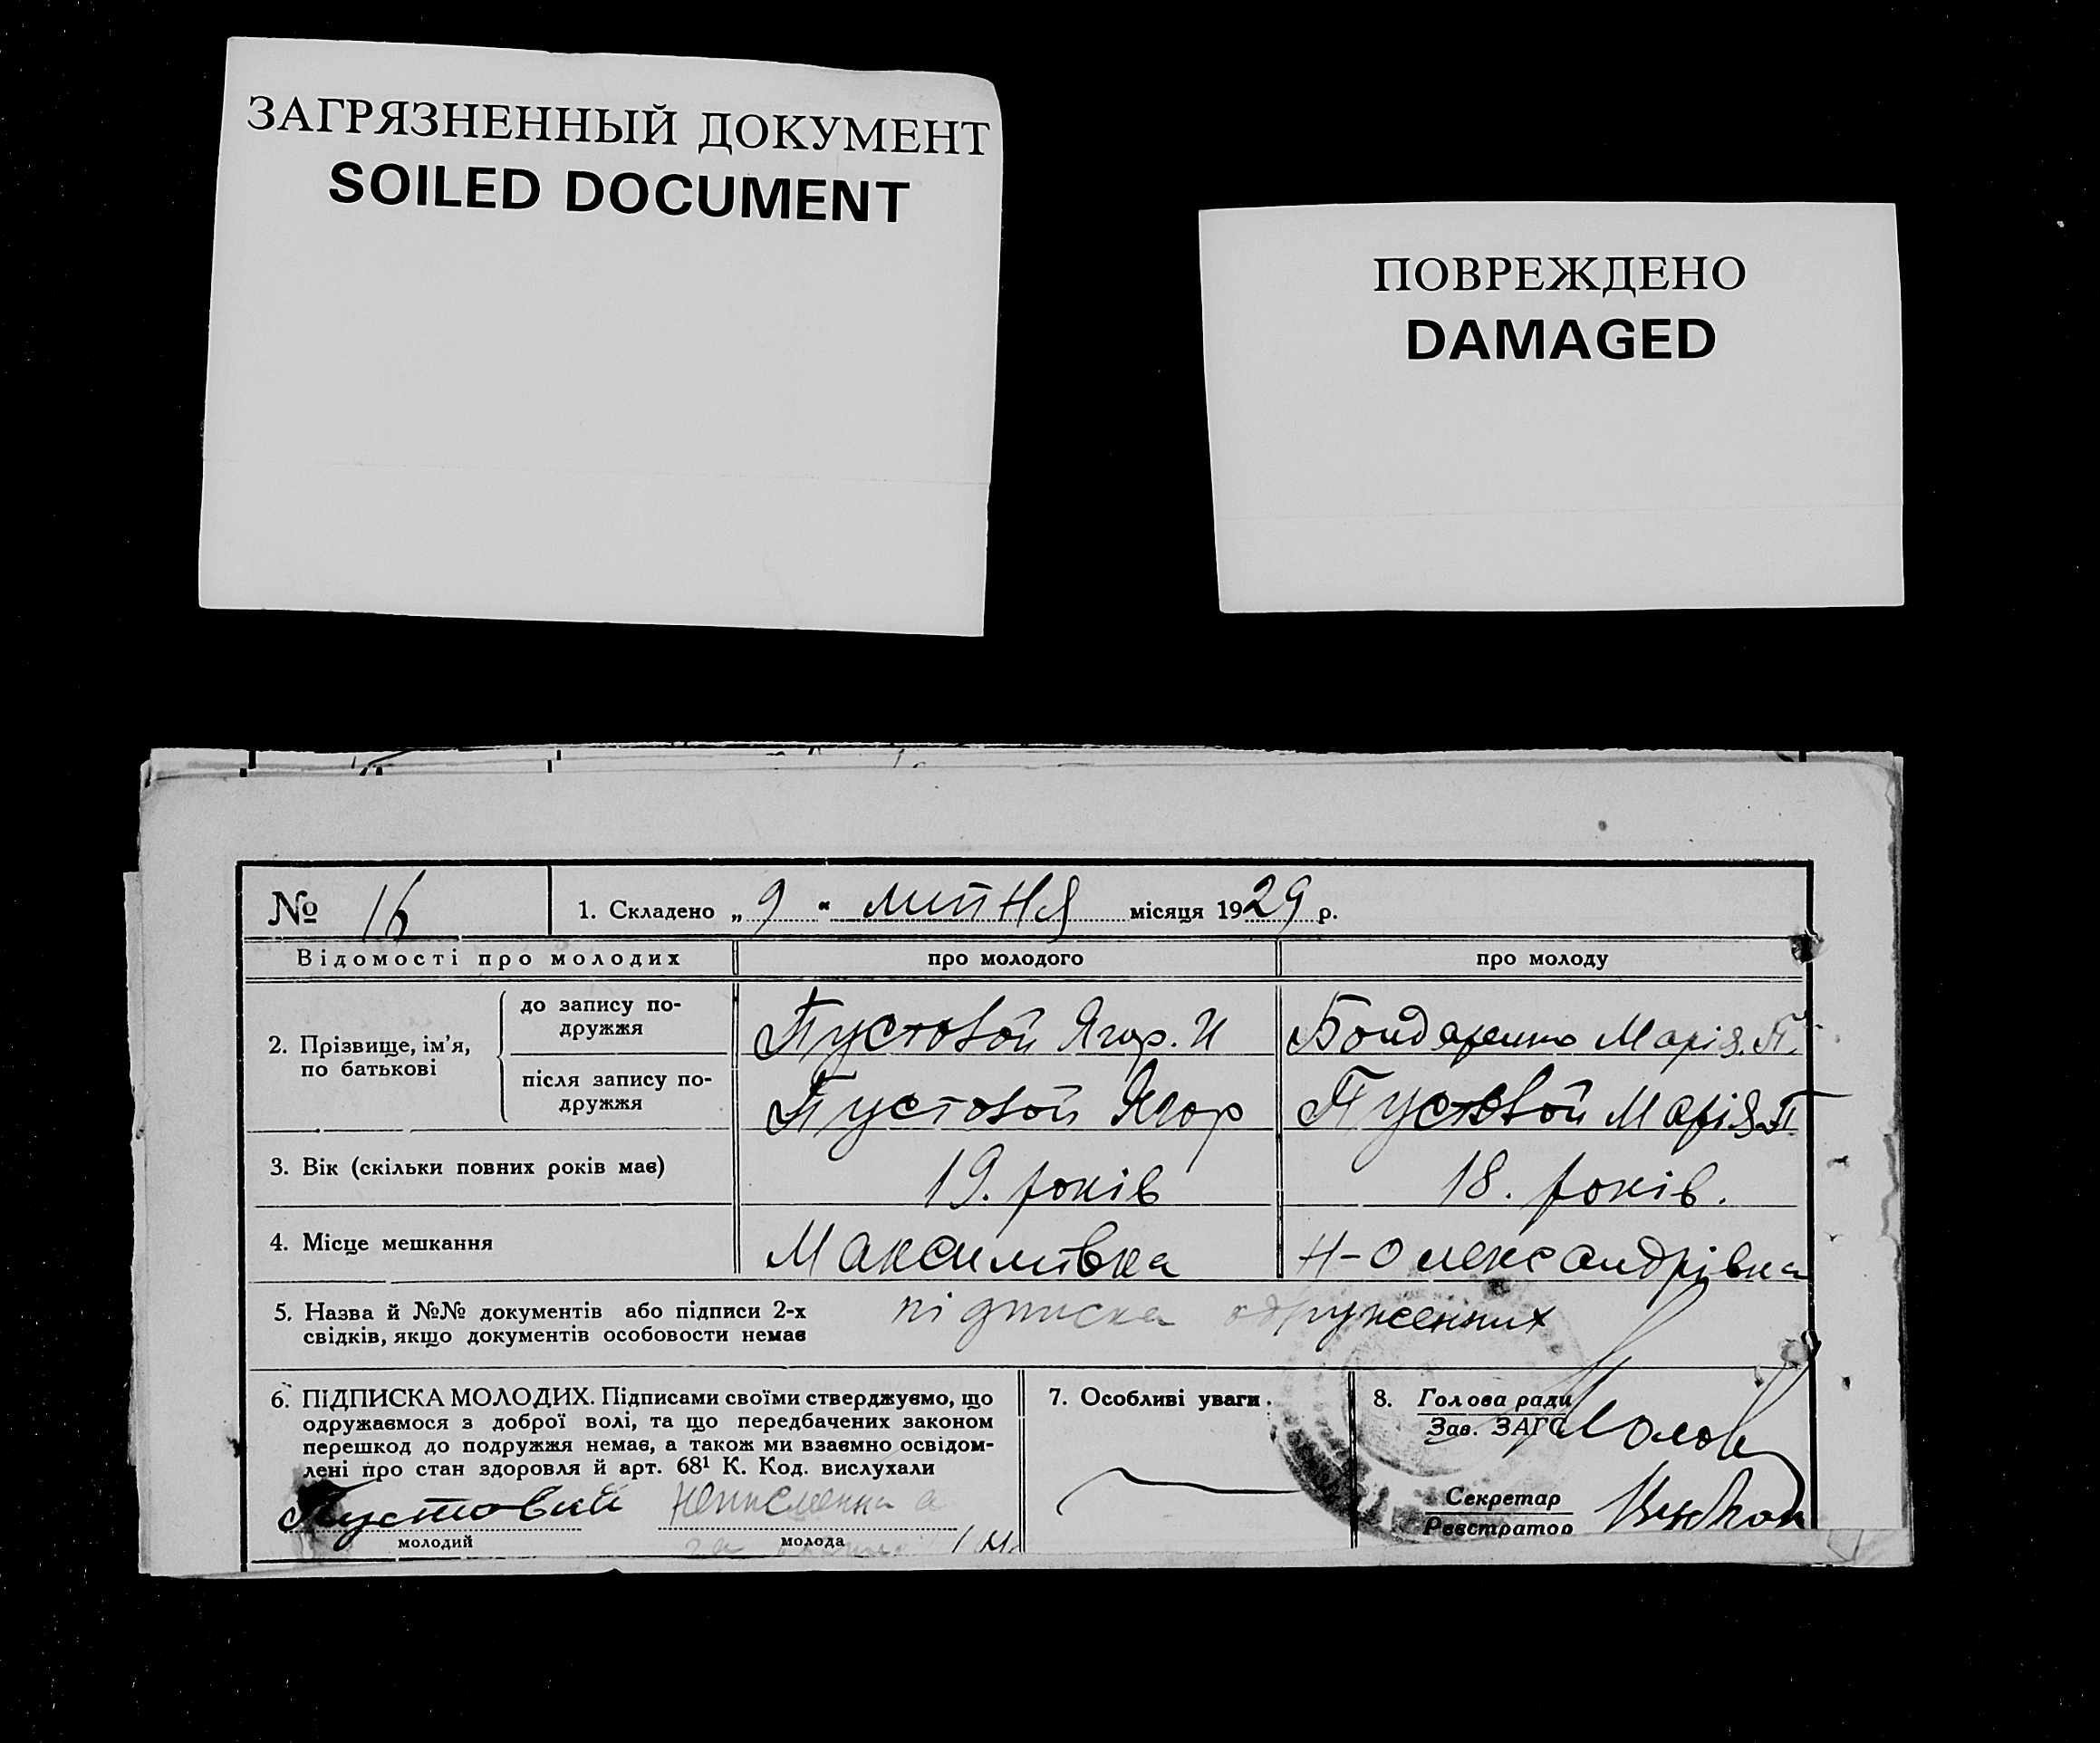 ЗАГРЯЗНЕННЫЙ ДОКУМЕНТ
SOILED DOCUMENT
ПОВРЕЖДЕНО
DAMAGED
№ 16
1. Складено „ 9 “ липня місяця 1929 р.
Відомості про молодих
про молодого
про молоду
2. Прізвище, ім’я,
по батькові
до запису по-
дружжя
Пустовой Ягор. И
Бондаренко Марія. П.
після запису по-
дружжя
Пустовой Ягор
Пустовой Марія П
3. Вік (скільки повних років має)
19. років
18. років.
4. Місце мешкання
Максимівка
Н-Олександрівка
5. Назва й №№ документів або підписи 2-х
свідків, якщо документів особовости немає
підписка одруженних
6. ПІДПИСКА МОЛОДИХ. Підписами своїми стверджуємо, що
одружаємося з доброї волі, та що передбачених законом
перешкод до подружжя немає, а також ми взаємно освідом-
лені про стан здоровля й арт. 68¹ К. Код. вислухали
Пустовий
молодий
молода
7. Особливі уваги.
8. Голова ради
Зав. ЗАГС
Секретар
Реєстратор